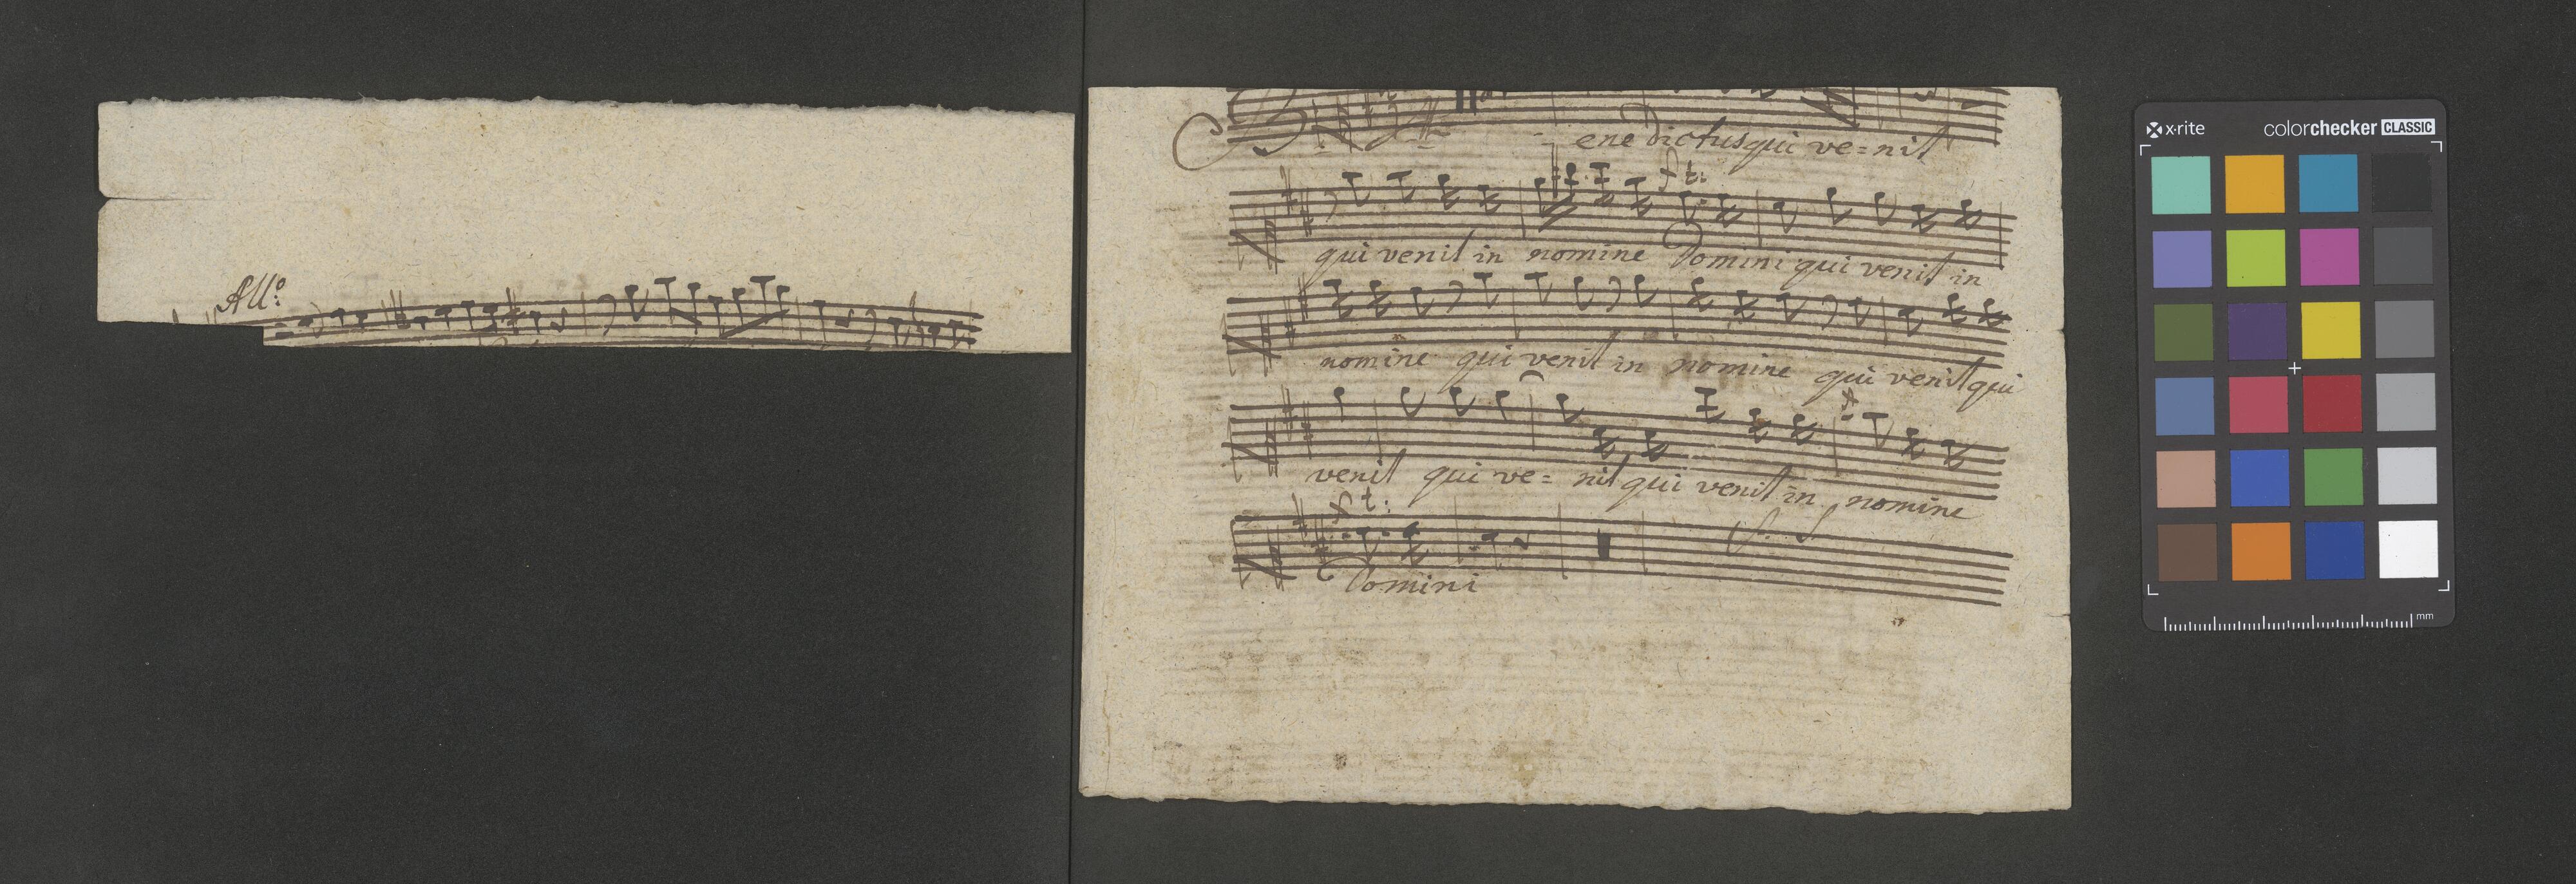 All⁰:
Benedictus qui ve=nit
t.
qui venit in nomine Domini qui venit in
nomine qui venit in nomine qui venit qui
venit qui ve= nit qui venit in nomine
t:
Domini
x·rite colorchecker CLASSIC
mm